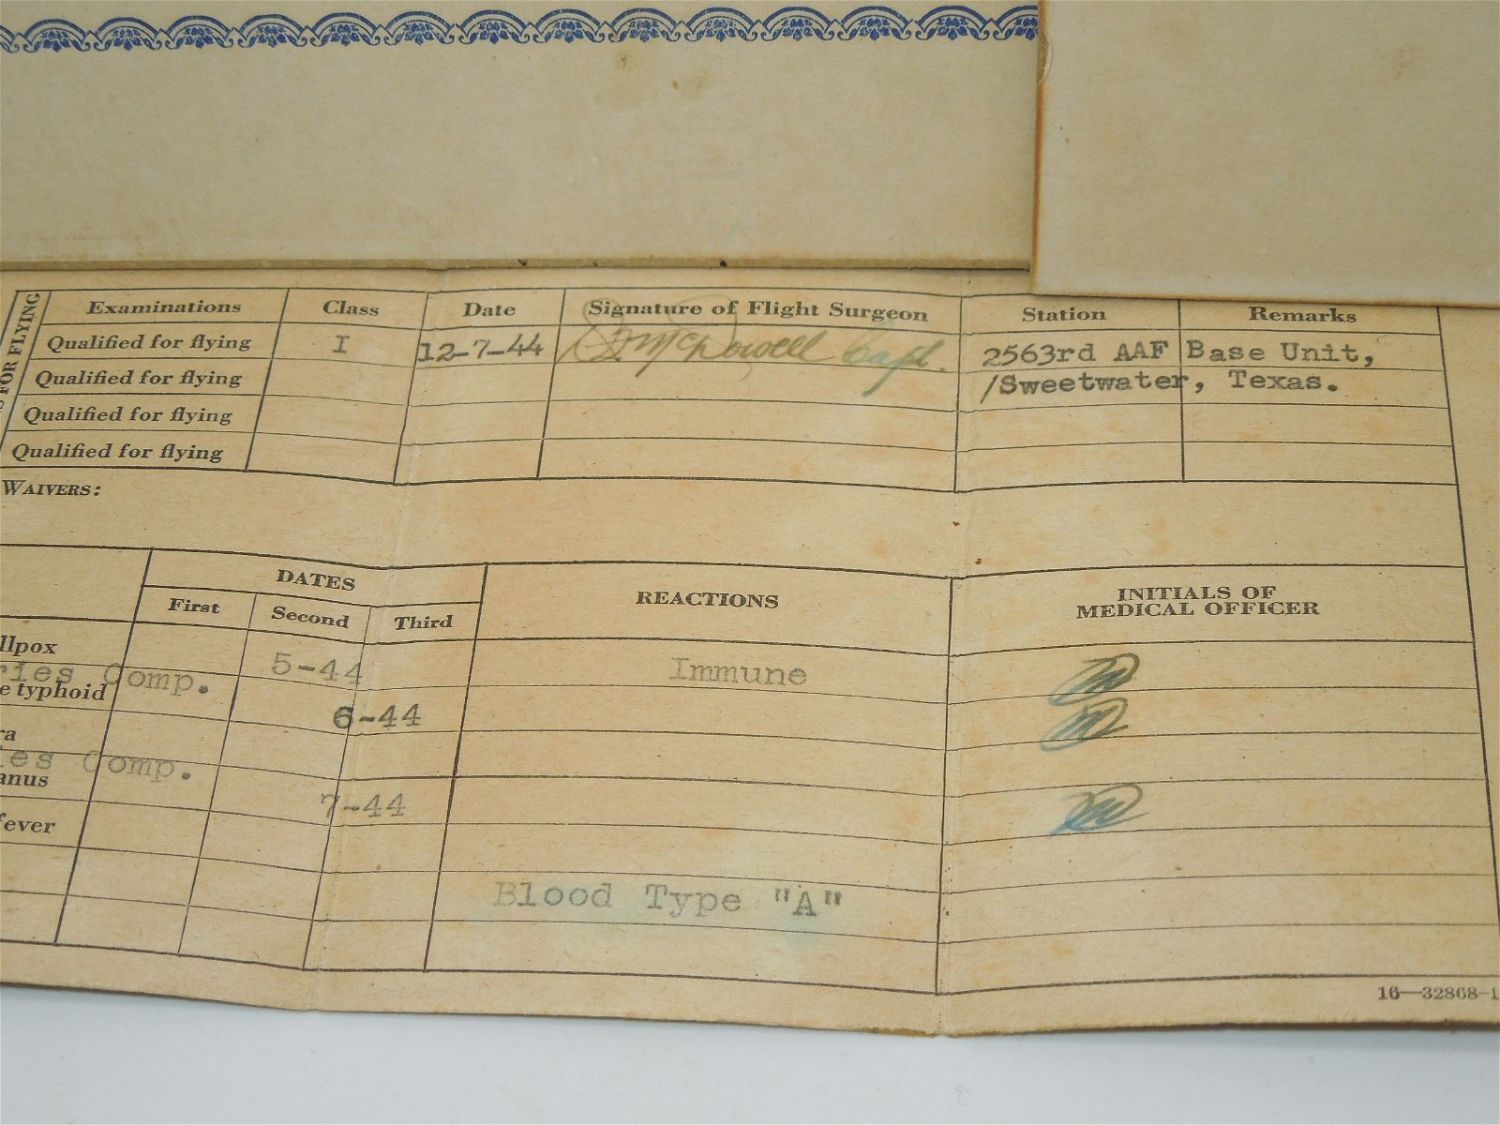 FOR FLYING
Examinations Class Date Signature of Flight Surgeon Station Remarks
Qualified for flying I 12-7-44 McDowell Capt. 2563rd AAF Base Unit,
Qualified for flying /Sweetwater, Texas.
Qualified for flying
Qualified for flying
WAIVERS:
DATES REACTIONS INITIALS OF
MEDICAL OFFICER
First Second Third
llpox 5-44 Immune
ries Comp.
e typhoid 6-44
ra
ies Comp.
anus 7-44
fever
Blood Type "A"
16—32868-1